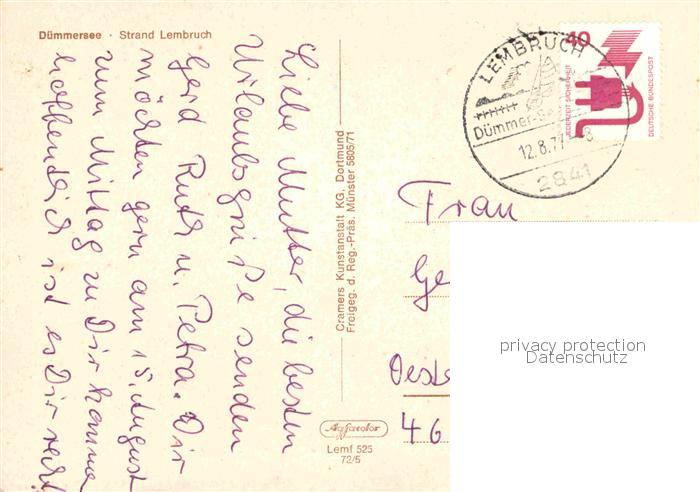 Dümmersee · Strand Lembruch
Liebe Mutter, die besten
Urlaubsgrüße senden
Gerd Ruth u. Petra. Wir
möchten gern am 15. August
zum Mittag zu Dir kommen
hoffentlich ist es Dir recht
Cramers Kunstanstalt KG, Dortmund
Freigeg. d. Reg.-Präs. Münster 5805/71
Agfacolor
Lemf 525
72/5
LEMBRUCH
Dümmer-See
12.8.77-8
2841
40
JEDERZEIT SICHERHEIT
DEUTSCHE BUNDESPOST
Frau
Ge
Oest
46
privacy protection
Datenschutz